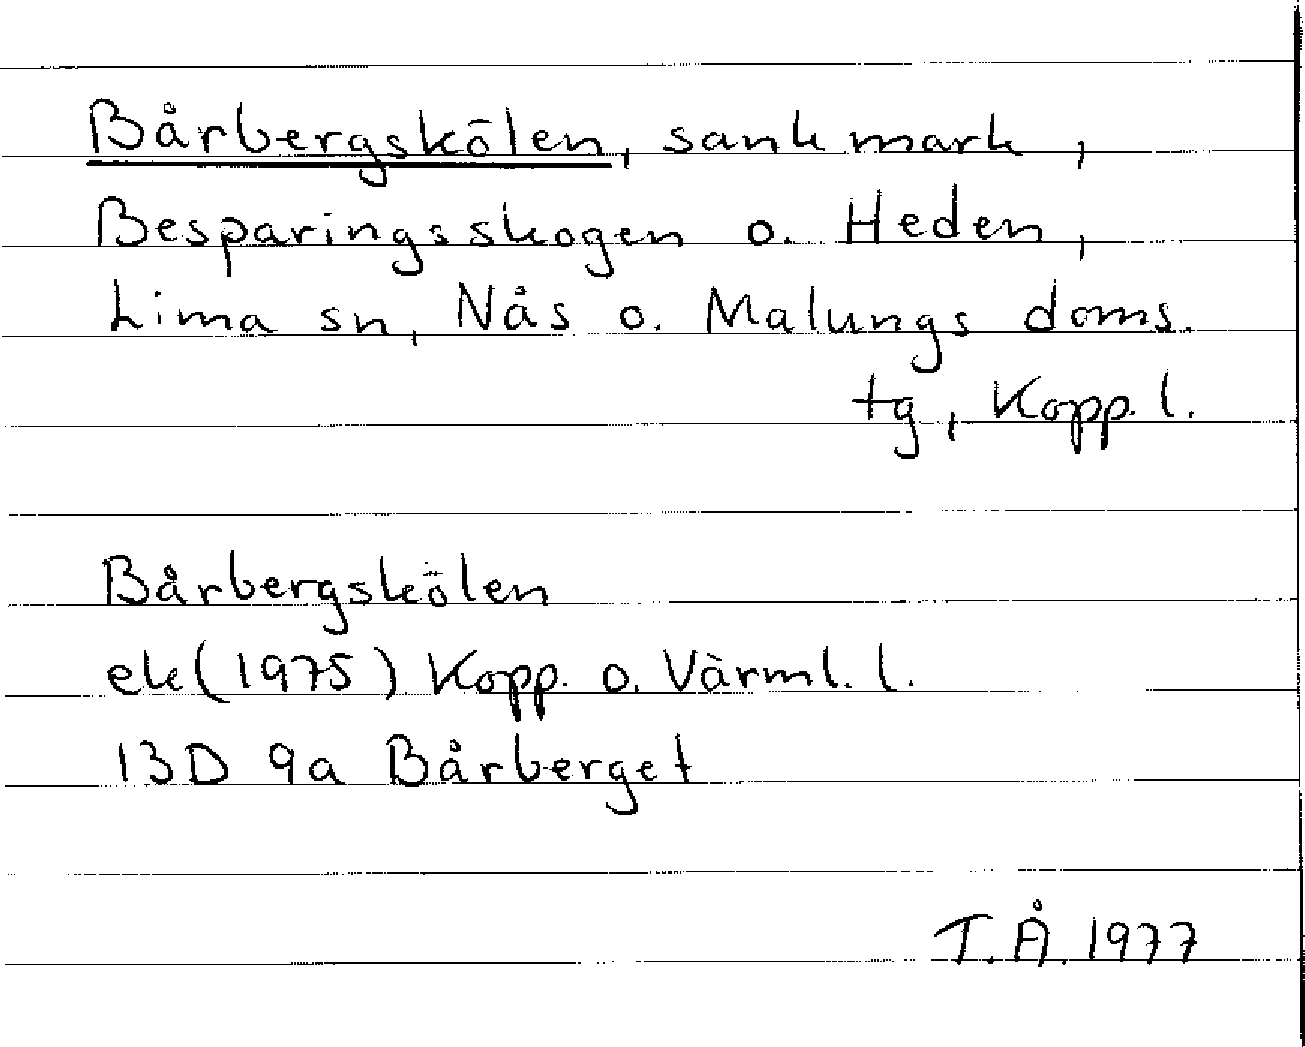 Bårbergskölen, sank mark,
Besparingsskogen o. Heden,
Lima sn, Nås o. Malungs doms.
tg, Kopp. l.
Bårbergskölen
ek (1975) Kopp. o. Värml. l.
13D 9a Bårberget
T.Å. 1977